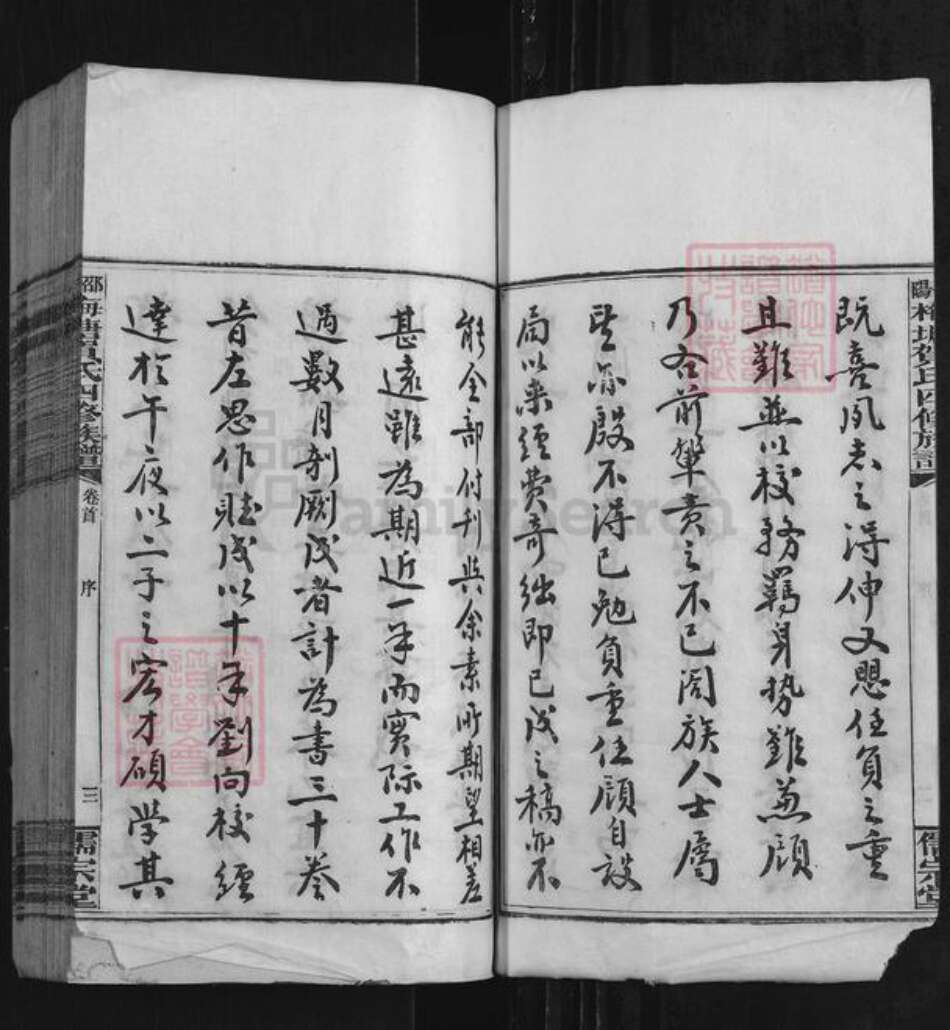 既喜夙志之得伸又懸任負之重
且難並以校務羈身勢難兼顧
乃在前輩責之不已闔族人士屬
望亦殷不得已勉負重任顧自設
局以來經費奇絀即已成之稿亦不
能全部付刊與余素所期望相差
甚遠雖為期近一年而實际工作不
過數月剞劂成者計為書三十卷
昔左思作賦成以十年劉向校經
達於午夜以二子之宏才碩學其
梅塘賀氏四修族譜
卷首
序
三
儒宗堂
FamilySearch